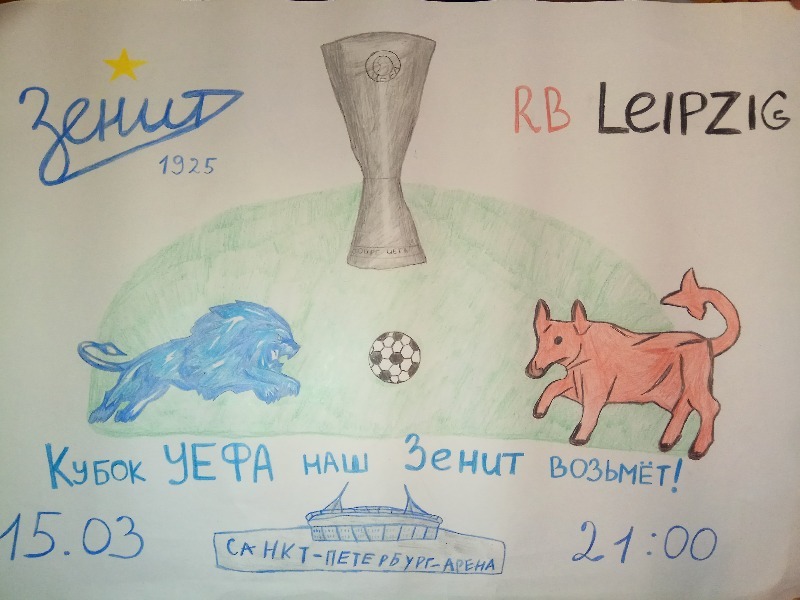 Зенит
1925
RB LEIPZIG
Кубок УЕФА наш Зенит возьмёт!
15.03
САНКТ-ПЕТЕРБУРГ-АРЕНА
21:00